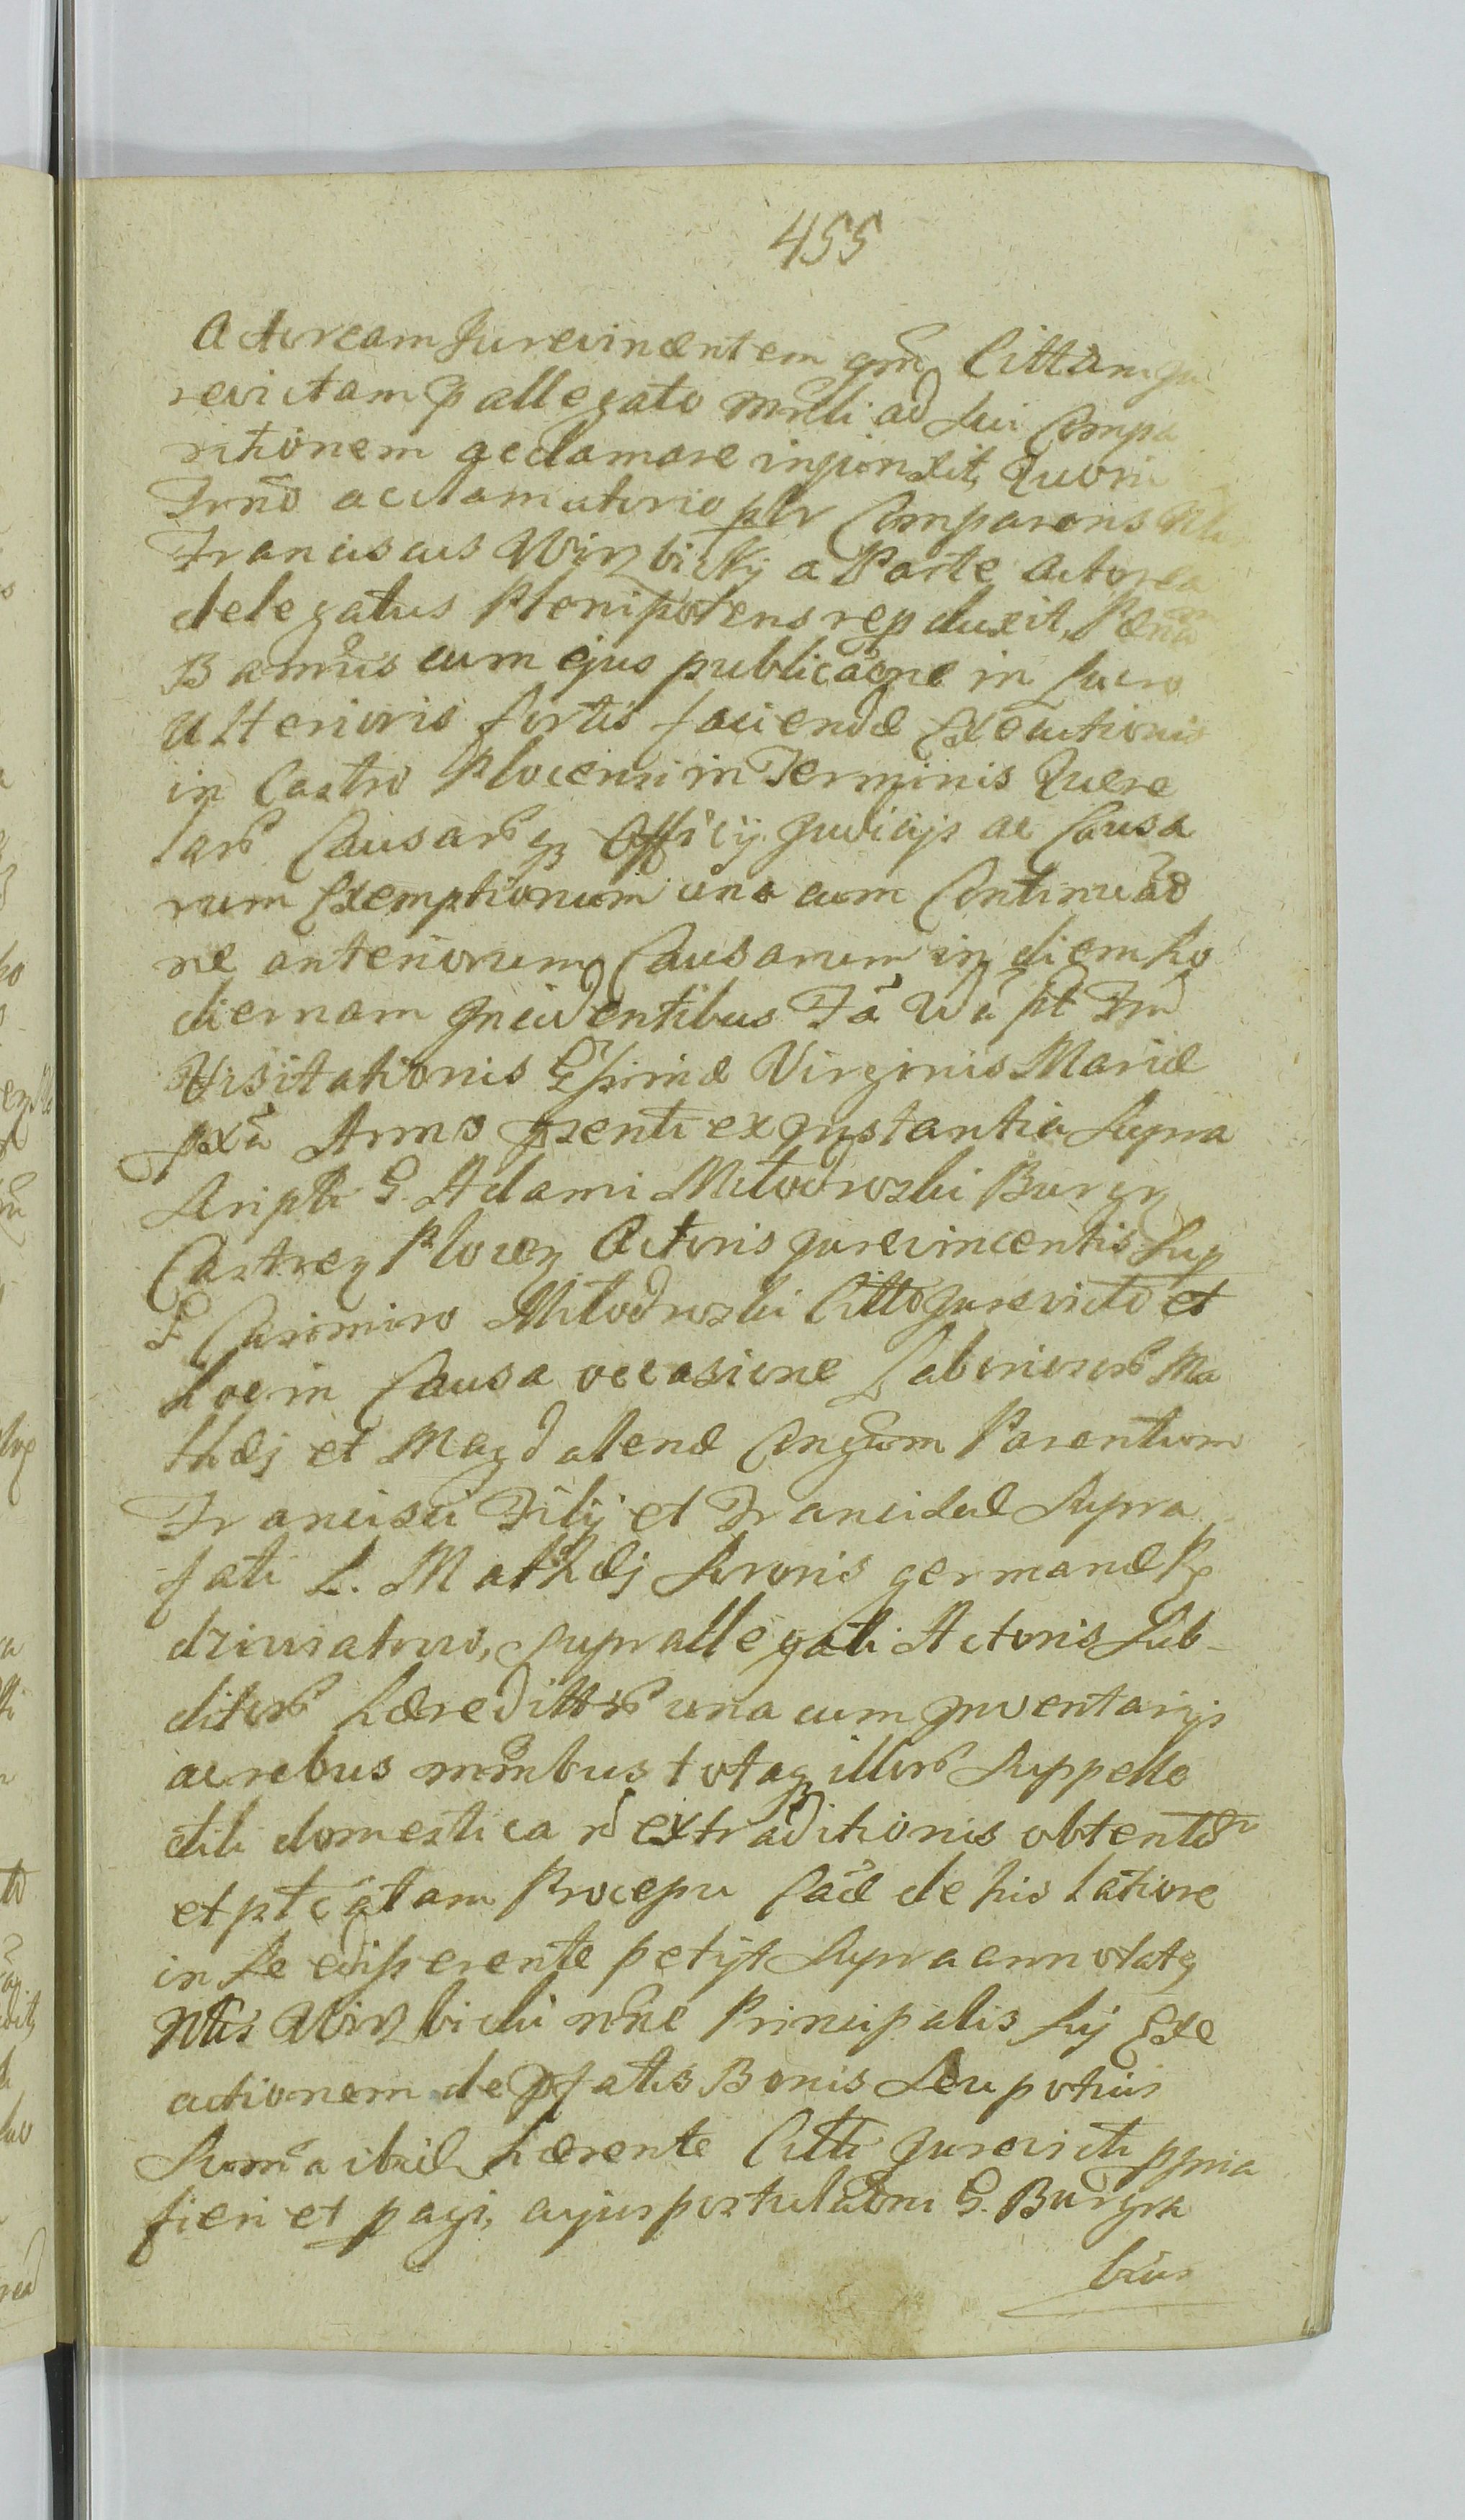 455
Actoream Jurevincentem qm̃ Cittam Ju
revictam p allegato mrli ad sui Compa
ritionem acclamare injunxit, Quom
Trno acclamatorio plr Comparens
Franciscus Wirzbicky a Parte Actorea
delegatus Plenipotens repduxit, Pœnã
Bannis cum ejus publicãone in
ulterioris fortis faciendæ Executionis
in Castro Plocensi in Terminis Quere
larũ Causarũqz Officÿ Judicijs ac Causa
rum Exemptionum una cum Continuão
ne anteriorum Causarum in diem ho
diernam Incidentibus Fã pt Fm
Visitationis Virginis Mariæ
pxã Anno psenti ex Instantia Supra
scripti G. Adami Miłodrozki Burgr
Castren Plocen Actoris Jurevincentis Sup
G Casimiro Miłodrozki Citto Jurevicto et
hoc in Causa occasione Laboriosorũ Ma
thæj et Magdalenæ Conjgum Parentum
Francisci Filij et Franciscæ Supra
fati L. Mathæj Sororis germanæ
dziuiatowo, supraallegati Actoris Sub-
ditorũ hæredittrũ una cum Inventarijs
ac rebus omnibus totaqz illorũ Suppelle
ctili domestica rõ extraditionis obtentã
et ptcãtam Processu Cãæ de his latiore
in se edisserente petijt Supraannotatq
Nlis Wirzbicki nõne Principalis sui Exe
cutionem de pfatis Bonis seu potius
Summa ibid hærente Citti Jurevicti ppria
fieri et pagi, cujus postulãtõni G. Burgra
bius